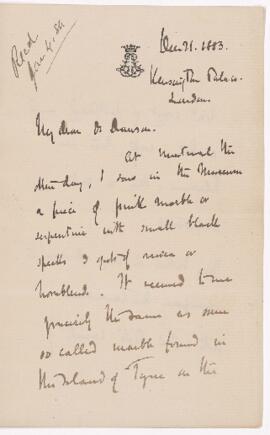 Recd
Jan 4. 84
Dec 21. 1883.
Kensington Palace
London.
My dear Dr Dawson.
At Montreal the
other day, I saw in the Museum
a piece of pink marble or
serpentine with small black
specks & spots of mica or
hornblende. It seemed to me
precisely the same as some
so called marble found in
the Island of Tyree on the